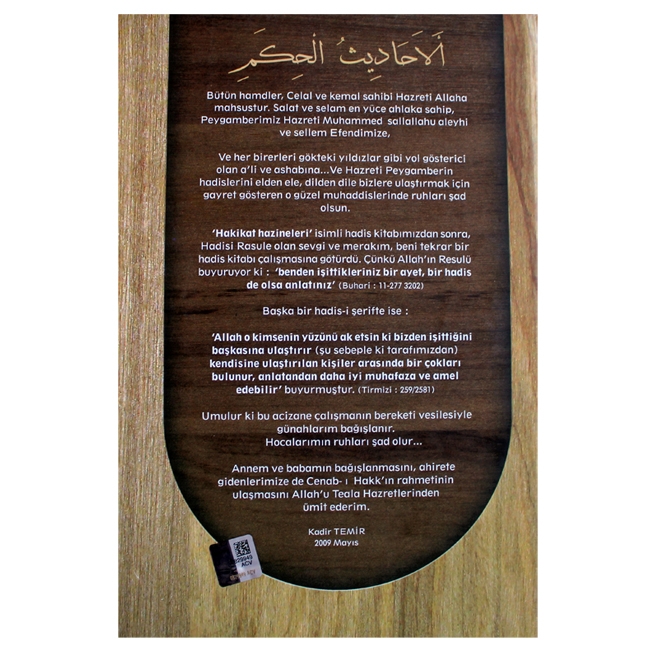 ألاحاديث الحكم
Bütün hamdler, Celal ve kemal sahibi Hazreti Allaha
mahsustur. Salat ve selam en yüce ahlaka sahip,
Peygamberimiz Hazreti Muhammed sallallahu aleyhi
ve sellem Efendimize,
Ve her birerleri gökteki yıldızlar gibi yol gösterici
olan a'li ve ashabına...Ve Hazreti Peygamberin
hadislerini elden ele, dilden dile bizlere ulaştırmak için
gayret gösteren o güzel muhaddislerinde ruhları şad
olsun.
'Hakikat hazineleri' isimli hadis kitabımızdan sonra,
Hadisi Rasule olan sevgi ve merakım, beni tekrar bir
hadis kitabı çalışmasına götürdü. Çünkü Allah'ın Resulü
buyuruyor ki : 'benden işittikleriniz bir ayet, bir hadis
de olsa anlatınız' (Buhari : 11-277 3202)
Başka bir hadis-i şerifte ise :
'Allah o kimsenin yüzünü ak etsin ki bizden işittiğini
başkasına ulaştırır (şu sebeple ki tarafımızdan)
kendisine ulaştırılan kişiler arasında bir çokları
bulunur, anlatandan daha iyi muhafaza ve amel
edebilir' buyurmuştur. (Tirmizi : 259/2581)
Umulur ki bu acizane çalışmanın bereketi vesilesiyle
günahlarım bağışlanır.
Hocalarımın ruhları şad olur...
Annem ve babamın bağışlanmasını, ahirete
gidenlerimize de Cenab- ı Hakk'ın rahmetinin
ulaşmasını Allah'u Teala Hazretlerinden
ümit ederim.
Kadir TEMİR
2009 Mayıs
ACV